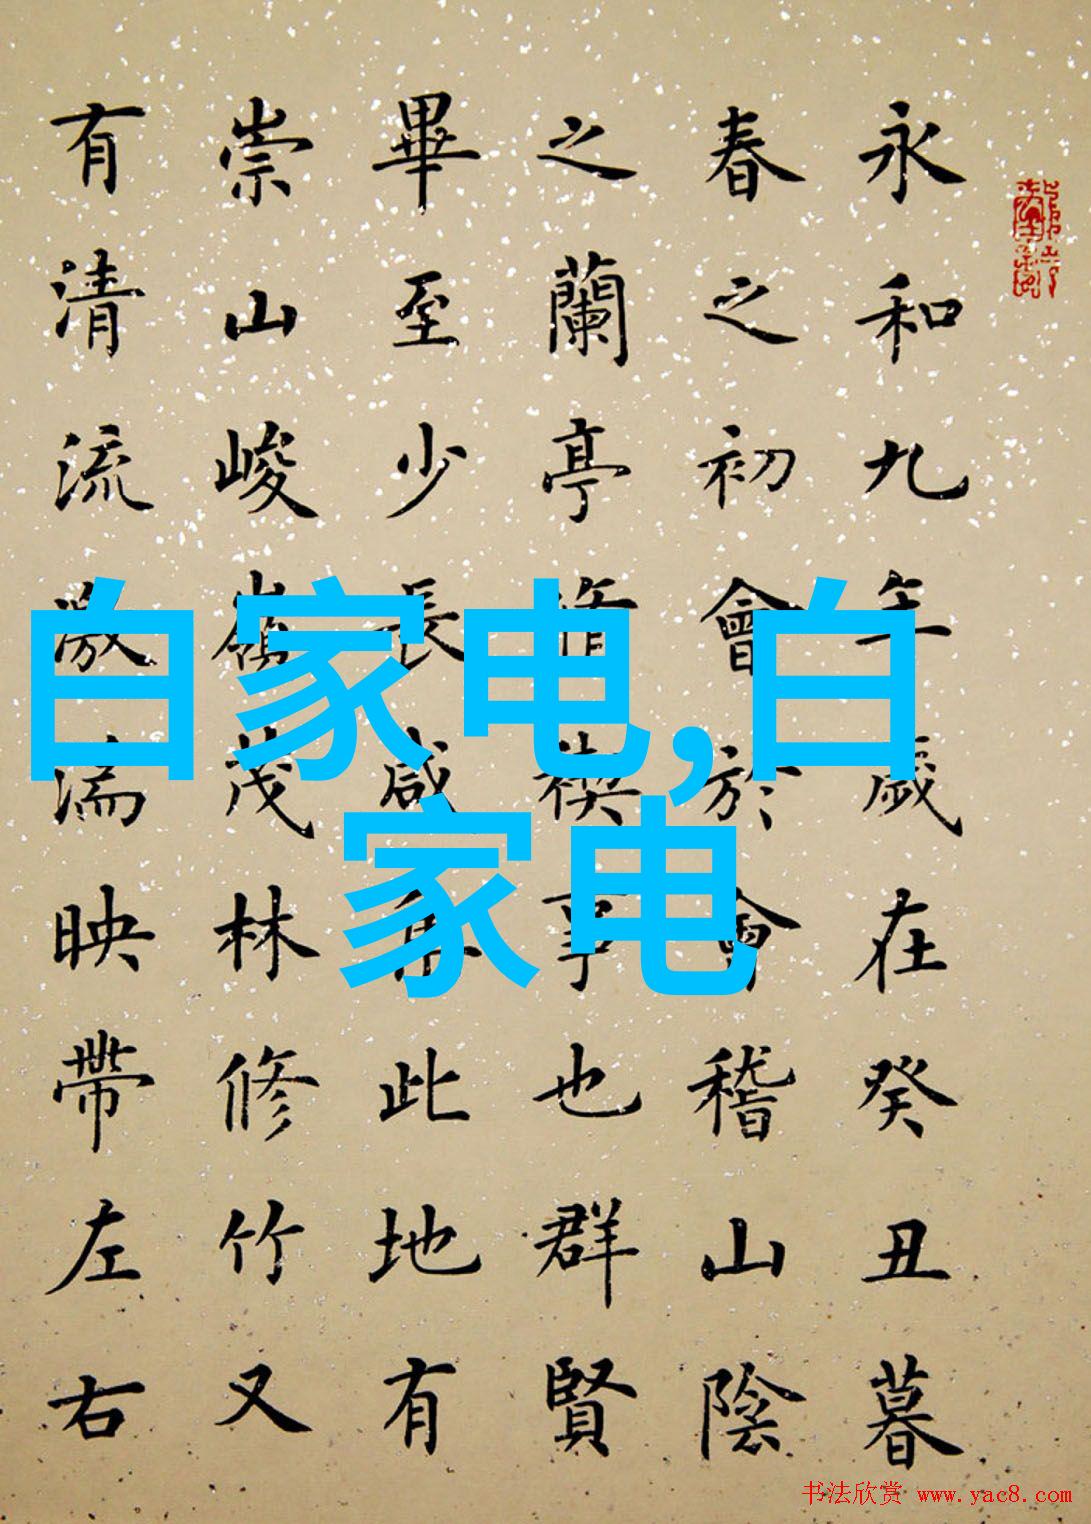 永和九年歲在癸丑暮
春之初會於會稽山陰
之蘭亭脩禊事也群賢
畢至少長咸集此地有
崇山峻嶺茂林修竹又
有清流激湍映帶左右
白家电,白
家电
书法欣赏 www.yac8.com